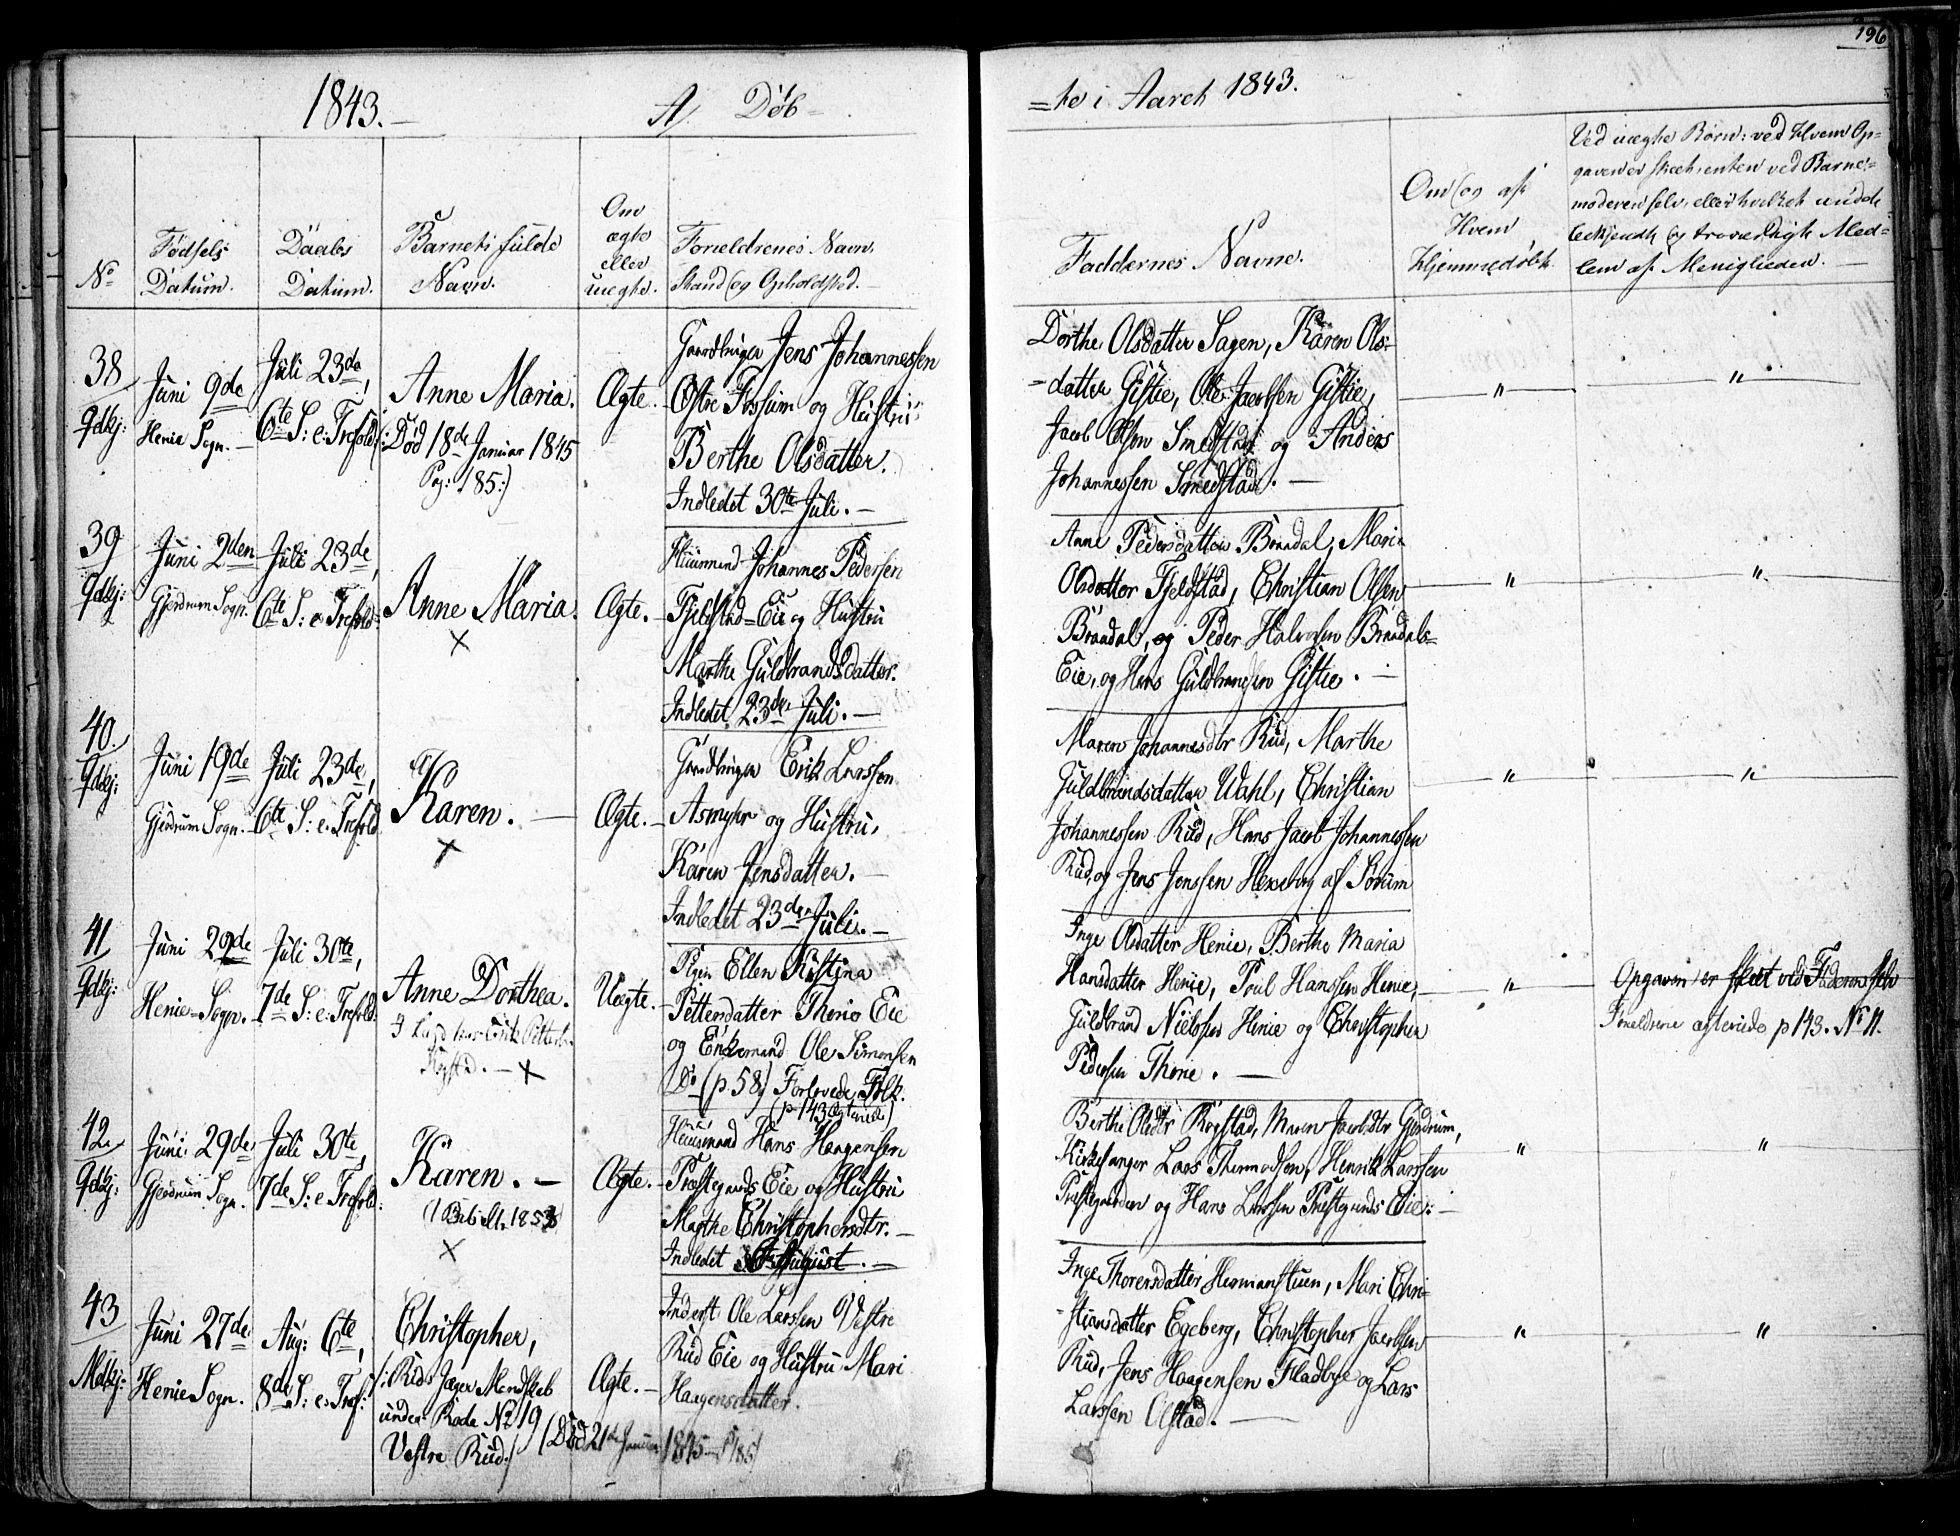 196
1843.
A/ Døb=
=te i Aaret 1843.
No
Fødsels Datum.
Daabs Datum.
Barnets fulde Navn.
Om ægte eller uægte.
Forældrenes Navn, Stand og Opholdsted.
Faddernes Navne.
Om og af Hvem Hjemmedøbt
Ved uægte Børn: ved Hvem Op-
gaven er skeet, enten ved Barne-
moderen selv, eller hvilket andet
bekjendt og troværdigt Med-
lem af Menigheden.
38
Qdkj:
Juni 9de
Henie Sogn.
Juli 23de,
6te S: e: Trefold:
Anne Maria.
(: Død 18de Januar 1845
Pag: 185:)
Ægte.
Gaardbruger Jens Johannessen
Østre Fossum og Hustru
Berthe Olsdatter.
Indledet 30te Juli.
Dorthe Olsdatter Sagen, Karen Ols-
datter Gistie, Ole Jacobsen Gistie,
Jacob Olsen Smedstad og Anders
Johannessen Smedstad.
"
"
39
Qdkj:
Juni 2den
Gjerdrum Sogn.
Juli 23de,
6te S: e: Trefold:
Anne Maria.
×
Ægte.
Huusmand Johannes Pedersen
Fjeldstad-Eie og Hustru
Marthe Guldbrandsdatter.
Indledet 23de Juli.
Anne Pedersdatter Braadal, Maria
Olsdatter Fjeldstad, Christian Olsen
Braadal, og Peder Halvorsen Braadals-
Eie, og Hans Guldbrandsen Gistie.
"
"
40.
Qdkj:
Juni 19de
Gjerdrum Sogn.
Juli 23de,
6te S: e: Trefold
Karen.
×
Ægte.
Gaardbruger Erik Larssen
Asmyhr og Hustru,
Karen Jensdatter.
Indledet 23de Juli.
Maren Johannesdtr Rud, Marthe
Guldbrandsdatter Wahl, Christian
Johannessen Rud, Hans Jacob Johannessen
Rud, og Jens Jenssen Hexeberg af Sørum
"
"
41
Qdkj:
Juni 22de
Henie Sogn.
Juli 30te,
7de S: e: Trefold:
Anne Dorthea.
×
Uægte.
Pigen Ellen Kistina
Pettersdatter Thorio Eie
og Enkemand Ole Simensen
Do (p 58) Forlovede Folk.
(p 143 ægteviede)
Inge Olsdatter Henie, Berthe Maria
Hansdatter Henie, Poul Hanssen Henie,
Guldbrand Nielssen Henie og Christopher
Pedersen Thorie.
"
Opgaven er skeet ved Faderen selv
Forældrene ægteviede p 143. No 11.
42
Qdkj:
Juni 29de
Gjerdrum Sogn.
Juli 30te,
7de S: e Trefold:
Karen.
×
Ægte.
Huusmand Hans Haagensen
Præstegaards Eie og Hustru
Marthe Christophersdtr.
Indledet August.
Berthe Olsdtr Rogstad, Maren Jacobsdtr Gjerdrum,
Kirkesanger Lars Thormodsen, Henrik Larssen
Præstegaarden og Hans Larssen Præstegaards Eie.
"
"
43
Mdkj:
Juni 27de
Henie Sogn.
Aug: 6te,
8de S: e: Tref:
Christopher,
(: Ruds Jæger Mandskab
under Rode No 19
Vestre Rud:)
(Død 21de Januar 1845 p 185)
Ægte.
Inderst Ole Larssen Vestre
Rud Eie og Hustru Mari
Haagensdatter.
Inge Thorersdatter Hermanstuen, Mari Chri-
stiansdatter Egeberg, Christopher Jacobsen
Rud, Jens Haagensen Fladbye og Lars
Larssen Olstad.
"
"